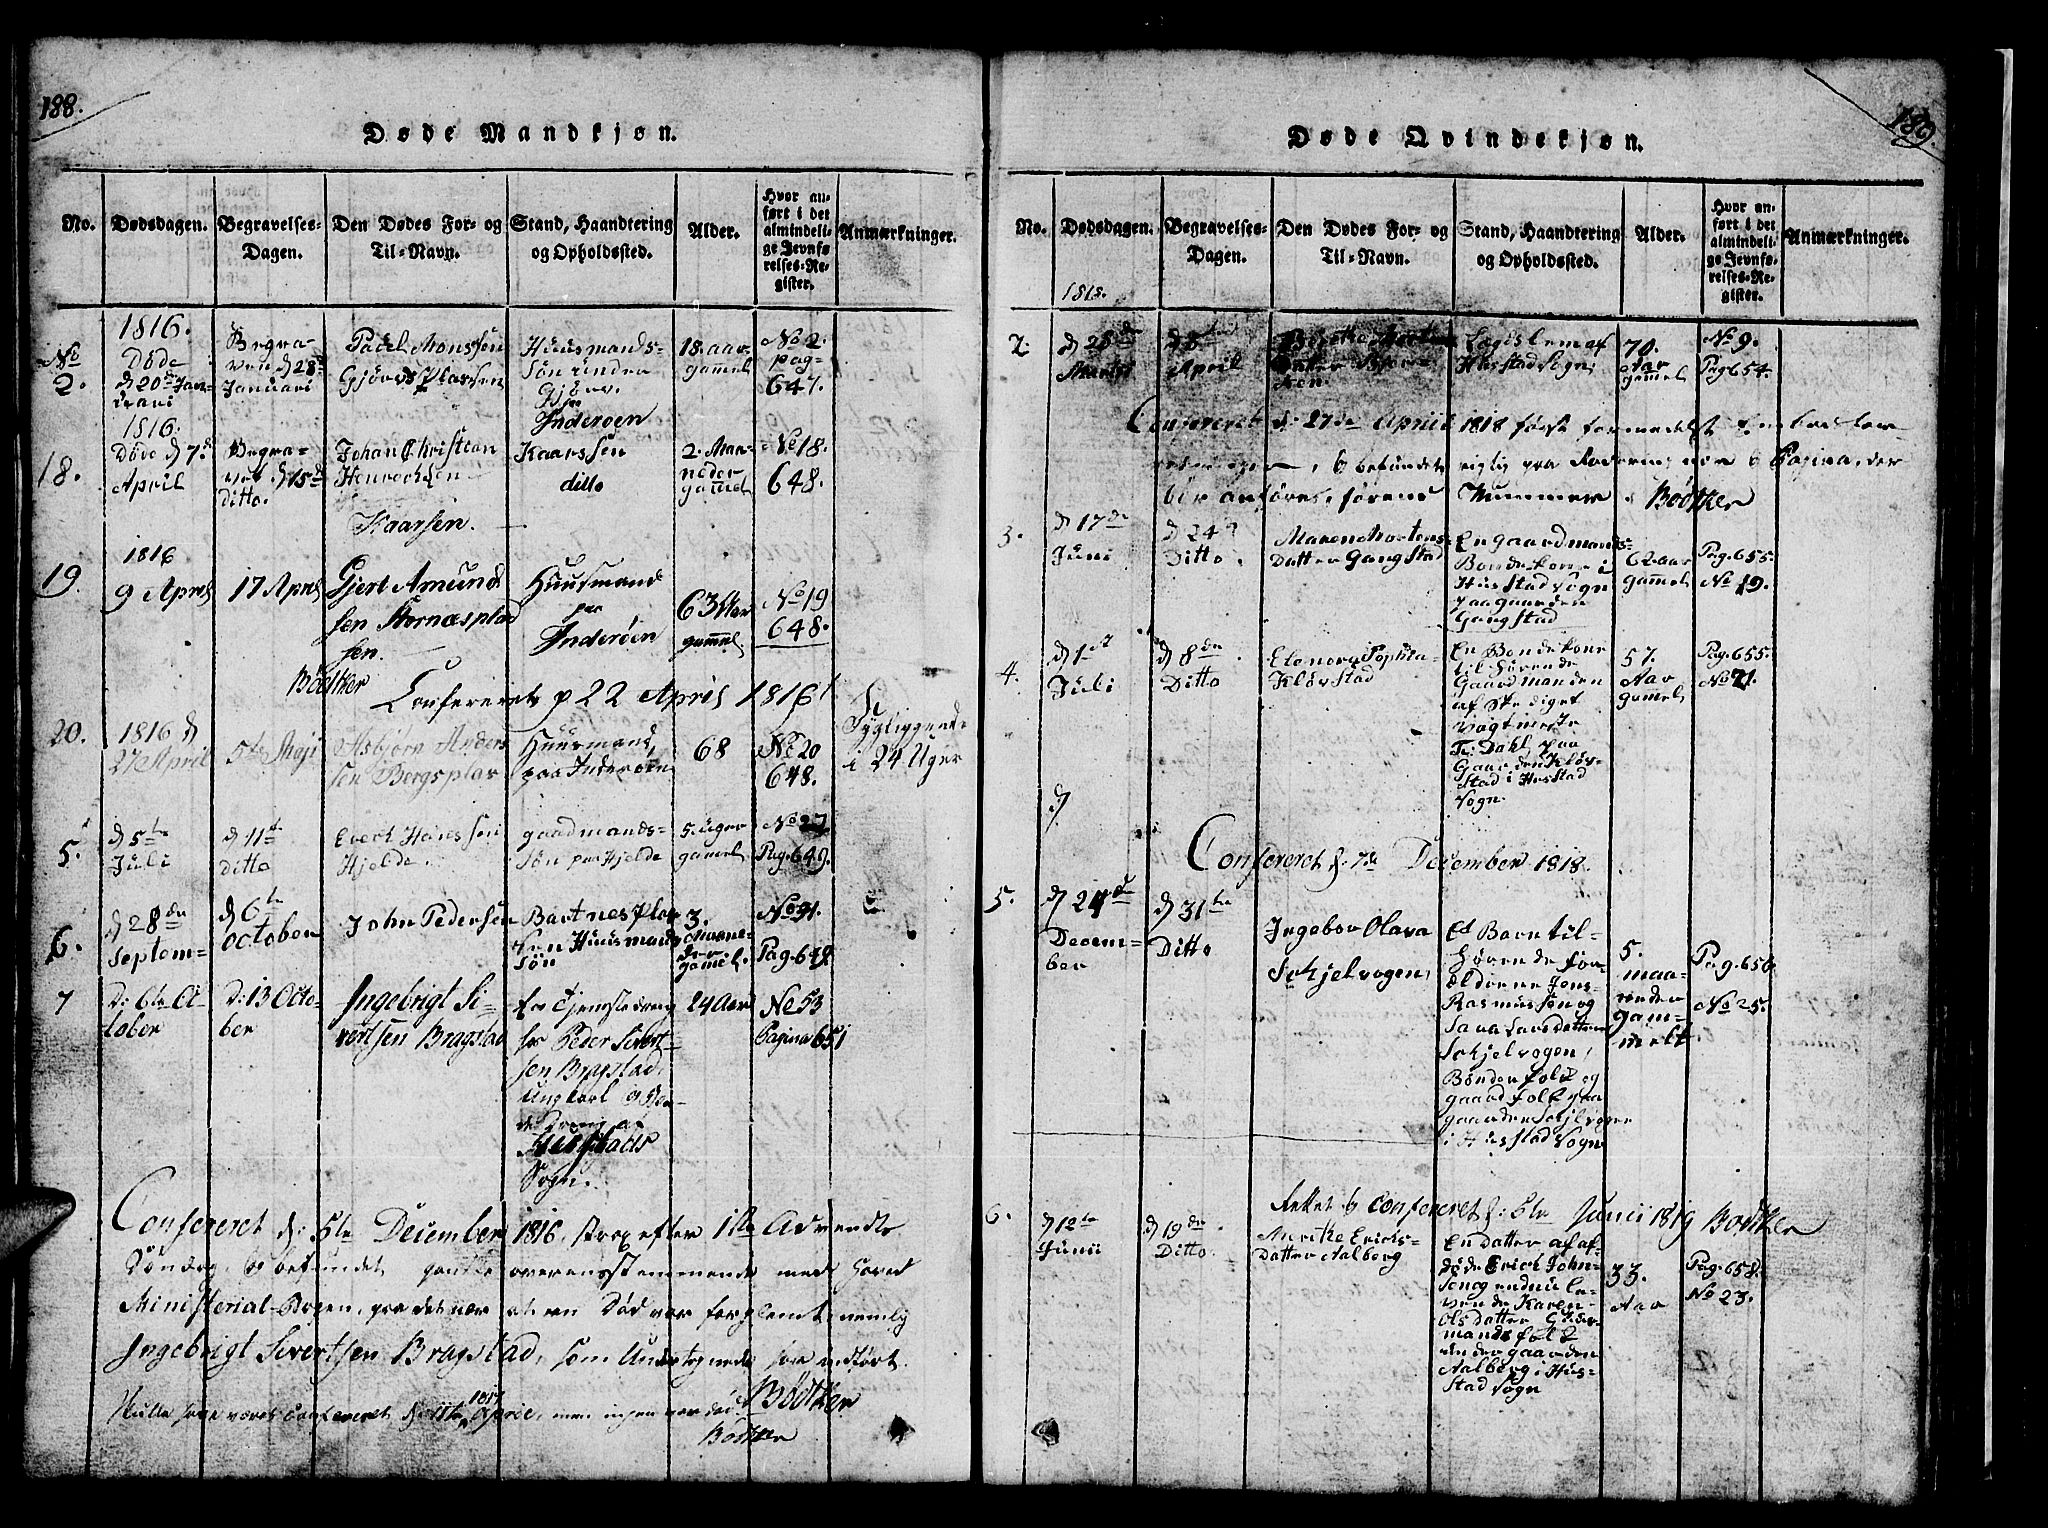 188.
Døde Mandkjøn.
No.
Dødsdagen.
Begravelses-
Dagen.
Den Dødes For- og
Til-Navn.
Stand, Haandtering
og Opholdssted.
Alder.
Hvor an-
ført i det
almindeli-
ge Jevnfø-
relses-Re-
gister.
Anmærkninger.
No
2.
1816.
Døde
d 20de Jan-
uari
Begra-
ven d 28de
Januari
Paul Monssøn
Gjørvs Plassen
Huusmands-
Søn under
Gjørv
Inderøen
18. aar
gamel
No 2.
pag-
647.
18.
1816.
Døde d 7de
April
Begra-
vet d 15de
Ditto.
Johan Christian
Henrechsen
Kaarsen.
Kaarssen
ditto
2. Maa-
neder
gamel
No 18.
648.
19.
1816
9 April
17 April
Gjert Amunds
sen Stornæsplad
sen.
Huusmand
paa
Inderöen
63 Aar
gammel
No 19
648.
Bödtker
Confereret d 22 April 1816
20.
1816 d
27 April
5te Maji
Asbjørn Anders
sen Bergsplas
Huusmand,
paa Inderøen
68
No 20
648.
Sygliggende
i 24 Uger
5.
d 5te
Juli
d 11te
ditto
Evert Hanssen
Hjelde.
gaadmands-
Søn paa Hjelde
5. uger
gamel
No 27
Pag. 649.
6.
d 28de
Septem-
d 6te
October
John Pedersen
Bartnes Plas
sen Huusmands
søn
3.
Maane-
der
gamel.
No 31.
Pag. 649
7
D: 6te Oc-
tober
D: 13 Octo-
ber
Ingebrigt Si-
vertsen Bragstad
en Tjenstedreng
hos Peder Sivert-
sen Bragstad,
Ungkarl
Hustads
Sogn.
24 Aar
No 53
Pagina 651
Confereret d: 5te December 1816, strax efter 1ste Advendts
Søndag, og befundet overensstemmende med
Ministerial-Bogen, paa det nær at en Død var forglemt nemlig
Ingebrigt Sivertsen Bragstad, som Undertegnede har indført.
Bödtker
Skulle have været Confereret d: 11te April 1817, men ingen var død.
Bödtker
189.
Døde Qvindekjøn.
No.
Dødsdagen.
Begravelses-
Dagen.
Den Dødes For- og
Til-Navn.
Stand, Haandtering
og Opholdssted.
Alder.
Hvor an-
ført i det
almindeli-
ge Jevnfø-
relses-Re-
gister.
Anmærkninger.
1818.
2.
d 28de
Martii
April
Lægdslem af
Husstad Sogn
70.
Aar
gamel
No 9.
Pag 654.
Confereret d: 27de April 1818 først formedelst Embeds for-
retninger, og befundet rigtig paa nær Pagina, der
bør anføres, førend Nummer. Bödtker
3.
d 17de
Juni
d 24de
Ditto
Maren Mortens-
Datter Gangstad
En gaardmands-
Bondekone i
Husstad Sogn
paa gaarden
Gangstad
62 aar
gammel
Pag. 655.
No 19.
4.
d 1st
Juli
d 8de
Ditto
Elenora Sophia
Kløvstad
En Bondekone
til hørende
Gaardmanden
af Skediget
Vagtmester
Dahl, paa
Gaarden Kløv-
stad i Husstad
Sogn.
57.
Aar
gamel
Pag. 655.
No 21.
d
Confereret d: 7de December 1818.
5.
d 24de
Decem-
ber
d 31te
Ditto
Ingebor Olava
Schjelvogen,
Et Barn til-
hørende for-
ældrene Jens
Rasmussen og
Sara Larsdatter
Schjelvogen,
Bønderfolk og
gaardfolk paa
gaarden Schjelvogen
i Husstad Sogn
5.
maa-
neder
gam-
melt
Pag. 656
No 25.
Rettet og Confereret d: 5te Junii 1819 Bödtker
6.
d 12te
Junii
d 19de
Ditto.
Anrike Erichs-
datter Aalberg
En datter af af-
døde Erich John-
sen og endnu le-
vende Karen
Olsdatter Gaar-
mandsfolk
under gaarden
Aalberg i Hus-
stad Sogn
33.
Aar
Pag. 658.
No 23.